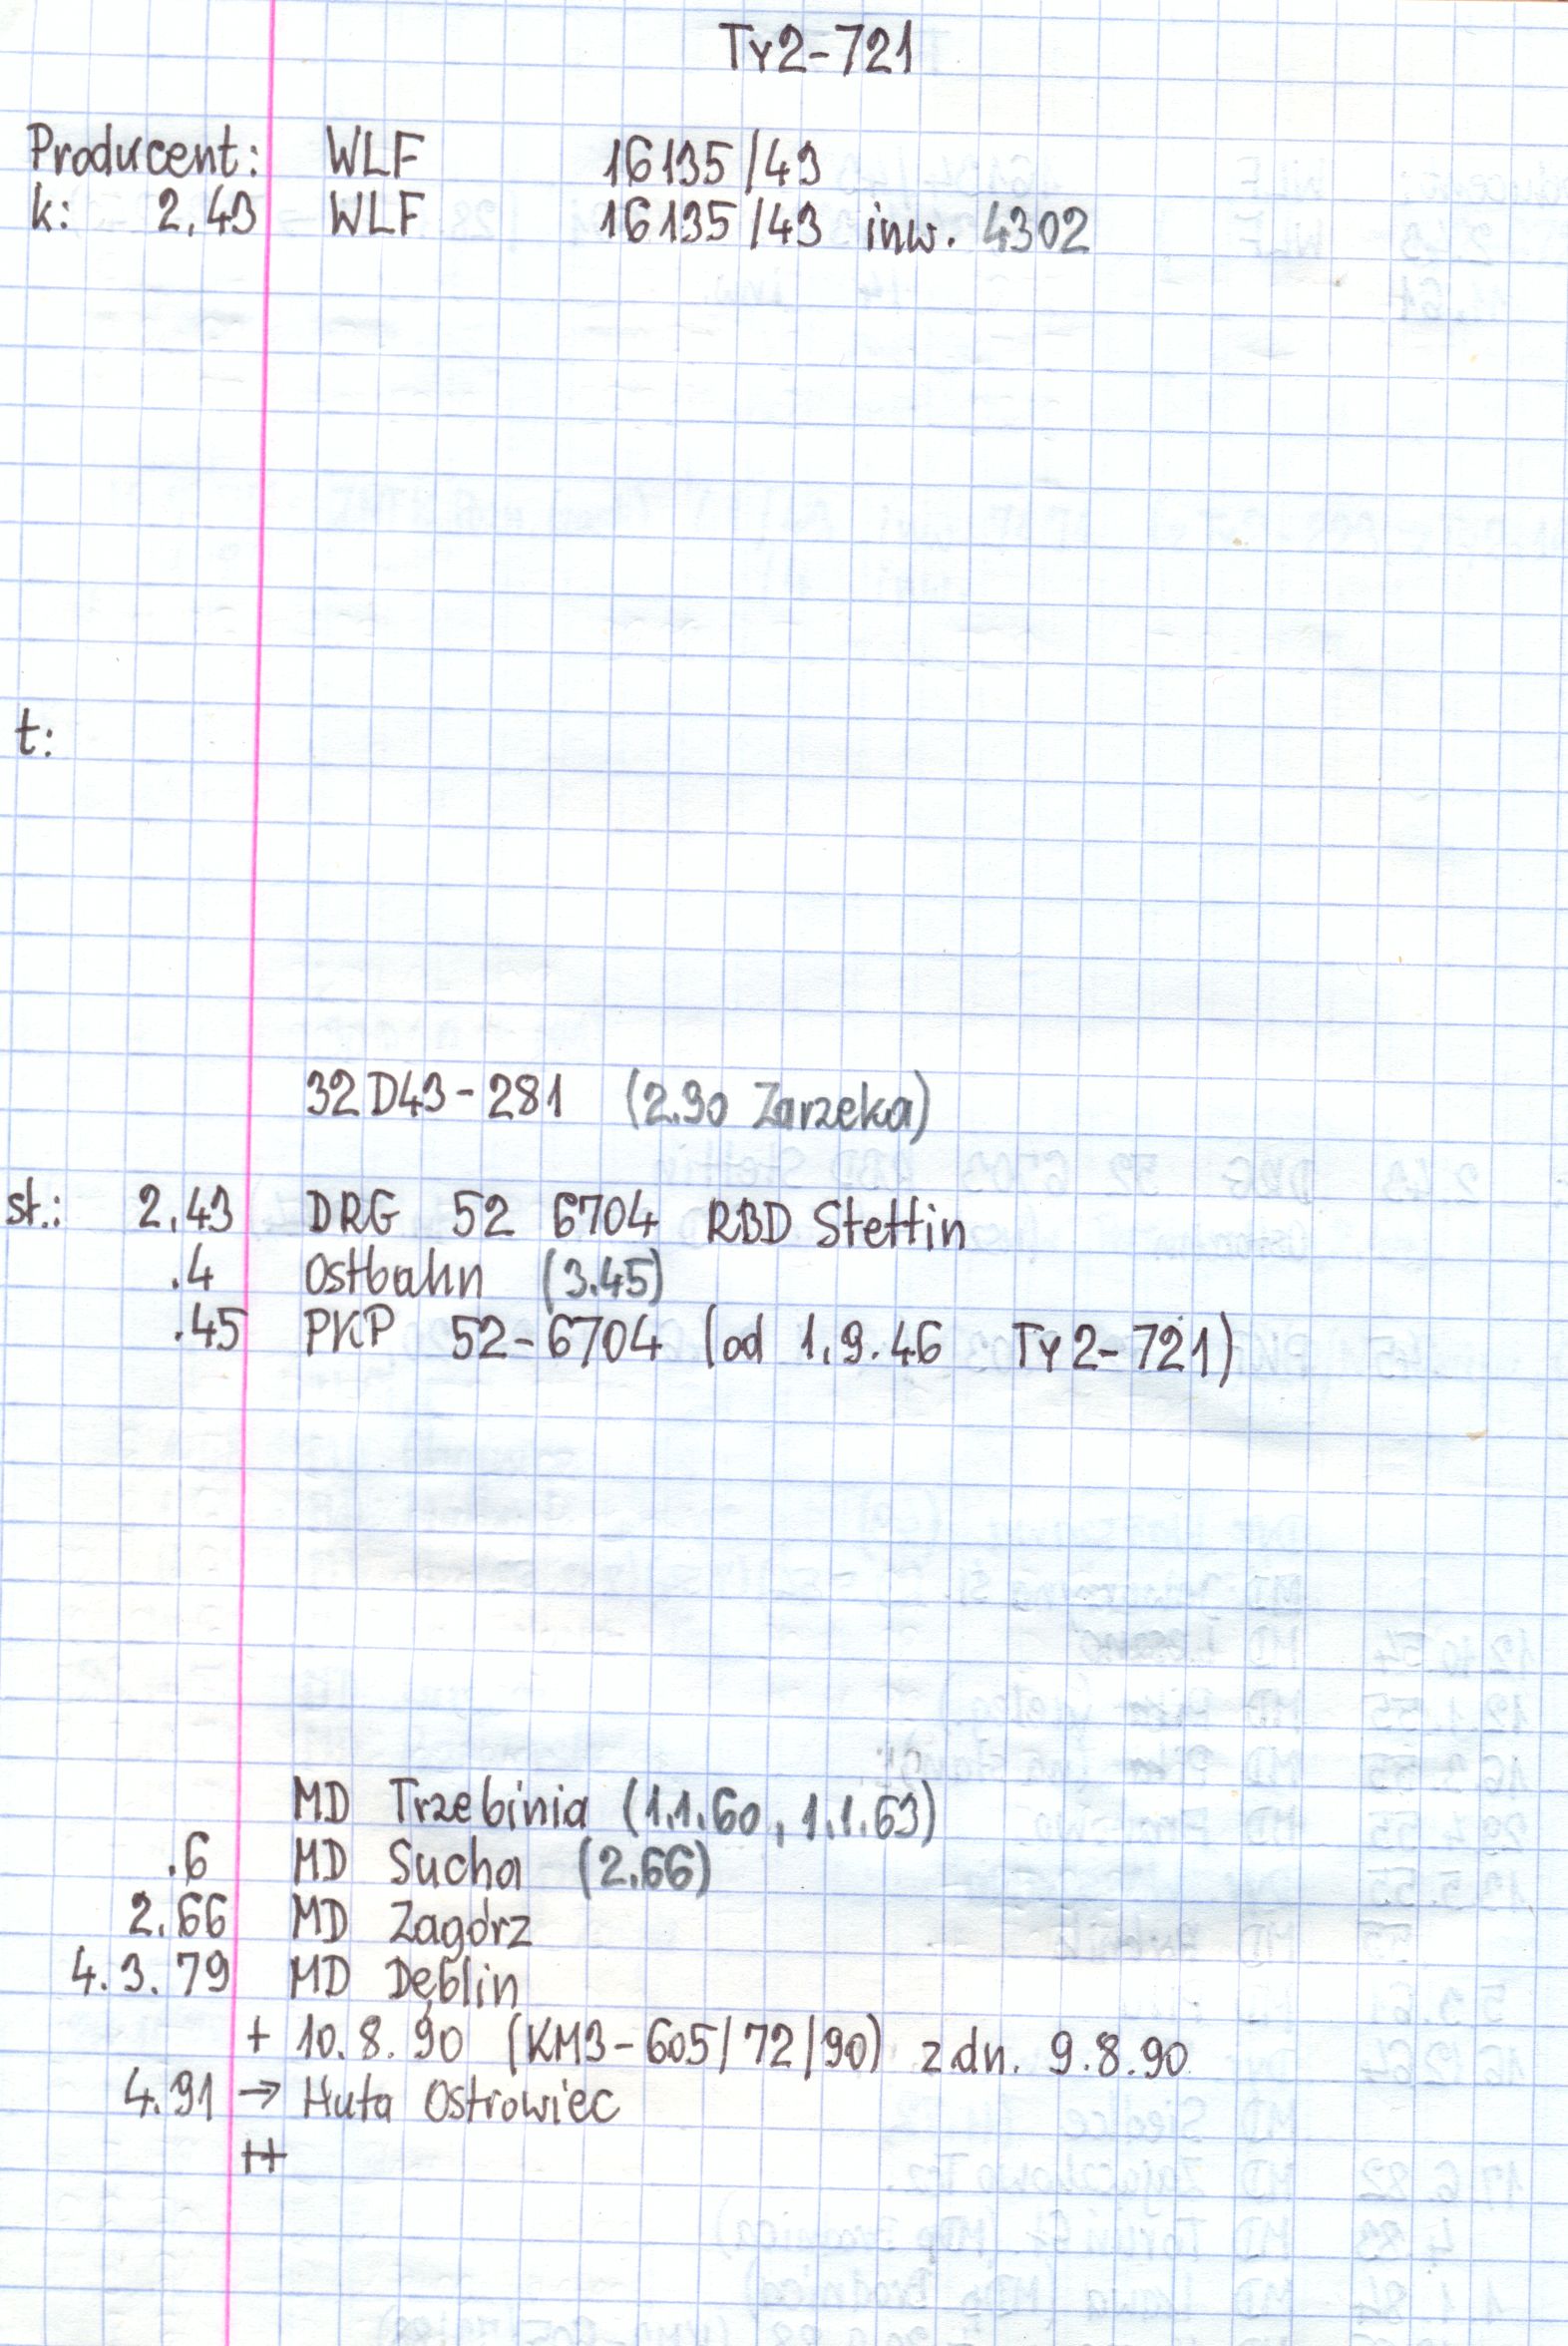 Ty2-721
Producent: WLF 16135/43
k: 2.43 WLF 16135/43 inw. 4302
t:
32D43-281 (2.90 Zarzeka)
st.: 2.43 DRG 52 6704 RBD Stettin
.4 Ostbahn (3.45)
.45 PKP 52-6704 (od 1.9.46 Ty2-721)
MD Trzebinia (1.1.60, 1.1.63)
.6 MD Sucha (2.66)
2.66 MD Zagórz
4.3.79 MD Dęblin
+ 10.8.90 (KM3-605/72/90) z dn. 9.8.90
4.91 → Huta Ostrowiec
++